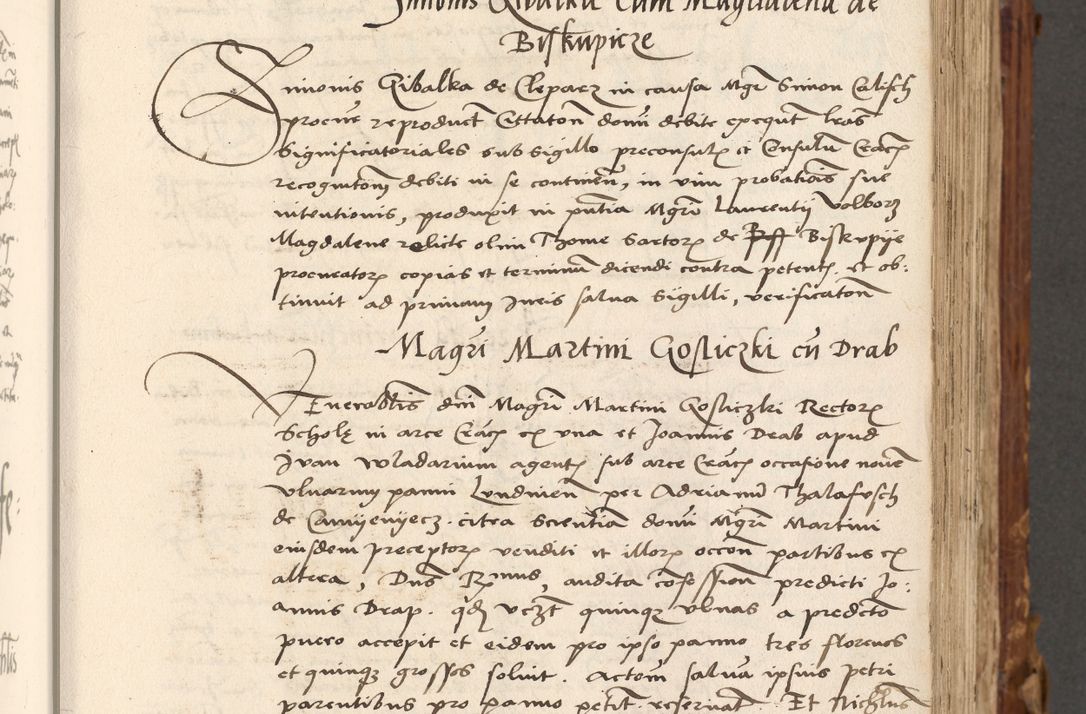 Simonis Gibalka cum Magdalena de
Biskupicze
Simonis Gibalka de Cleparz in causa Mgri Simon Calisch
procure reproduct Citatom domi debite exequt lras
Significatoriales sub sigillo preconsulz et Consulu Cracz
recognitom debiti in se continen, in vim probatiois sue
intentionis, produxit in pntia Mgri Laurentij Volborz
Magdalene relicte olim Thome Sartorz de Biskupije
procuratorz copias et terminu dicendi contra petentz et ob:
tinuit ad primam Jureis salva Sigilli, verificatom
Magri Martini Gosliczki cu Drab
Venerabilis dni Magri Martini Gosliczki Rectorz
Scholę in arce Cracz ex una et Joannis Drab apud
Ivan Wladarium agentz sub arce Cracz occasione novem
Ulnarum panni Lundinen per Adrianu Thalafusch
de Camijenijecz citra Scientia domi Mgri Martini
eiusdem preceptorz venditi et illorz occon partibus ex
altera, Dns R mus, audita cofession predicti Jo:
annis Drap. qd uczt quinqz Ulnas a predicto
puero accepit et eidem pro ipso panno tres florenos
et quinqz grossos soluit. Actom salva ipsius Petri
parentibus pro panno petit reservat. Et Nichilus